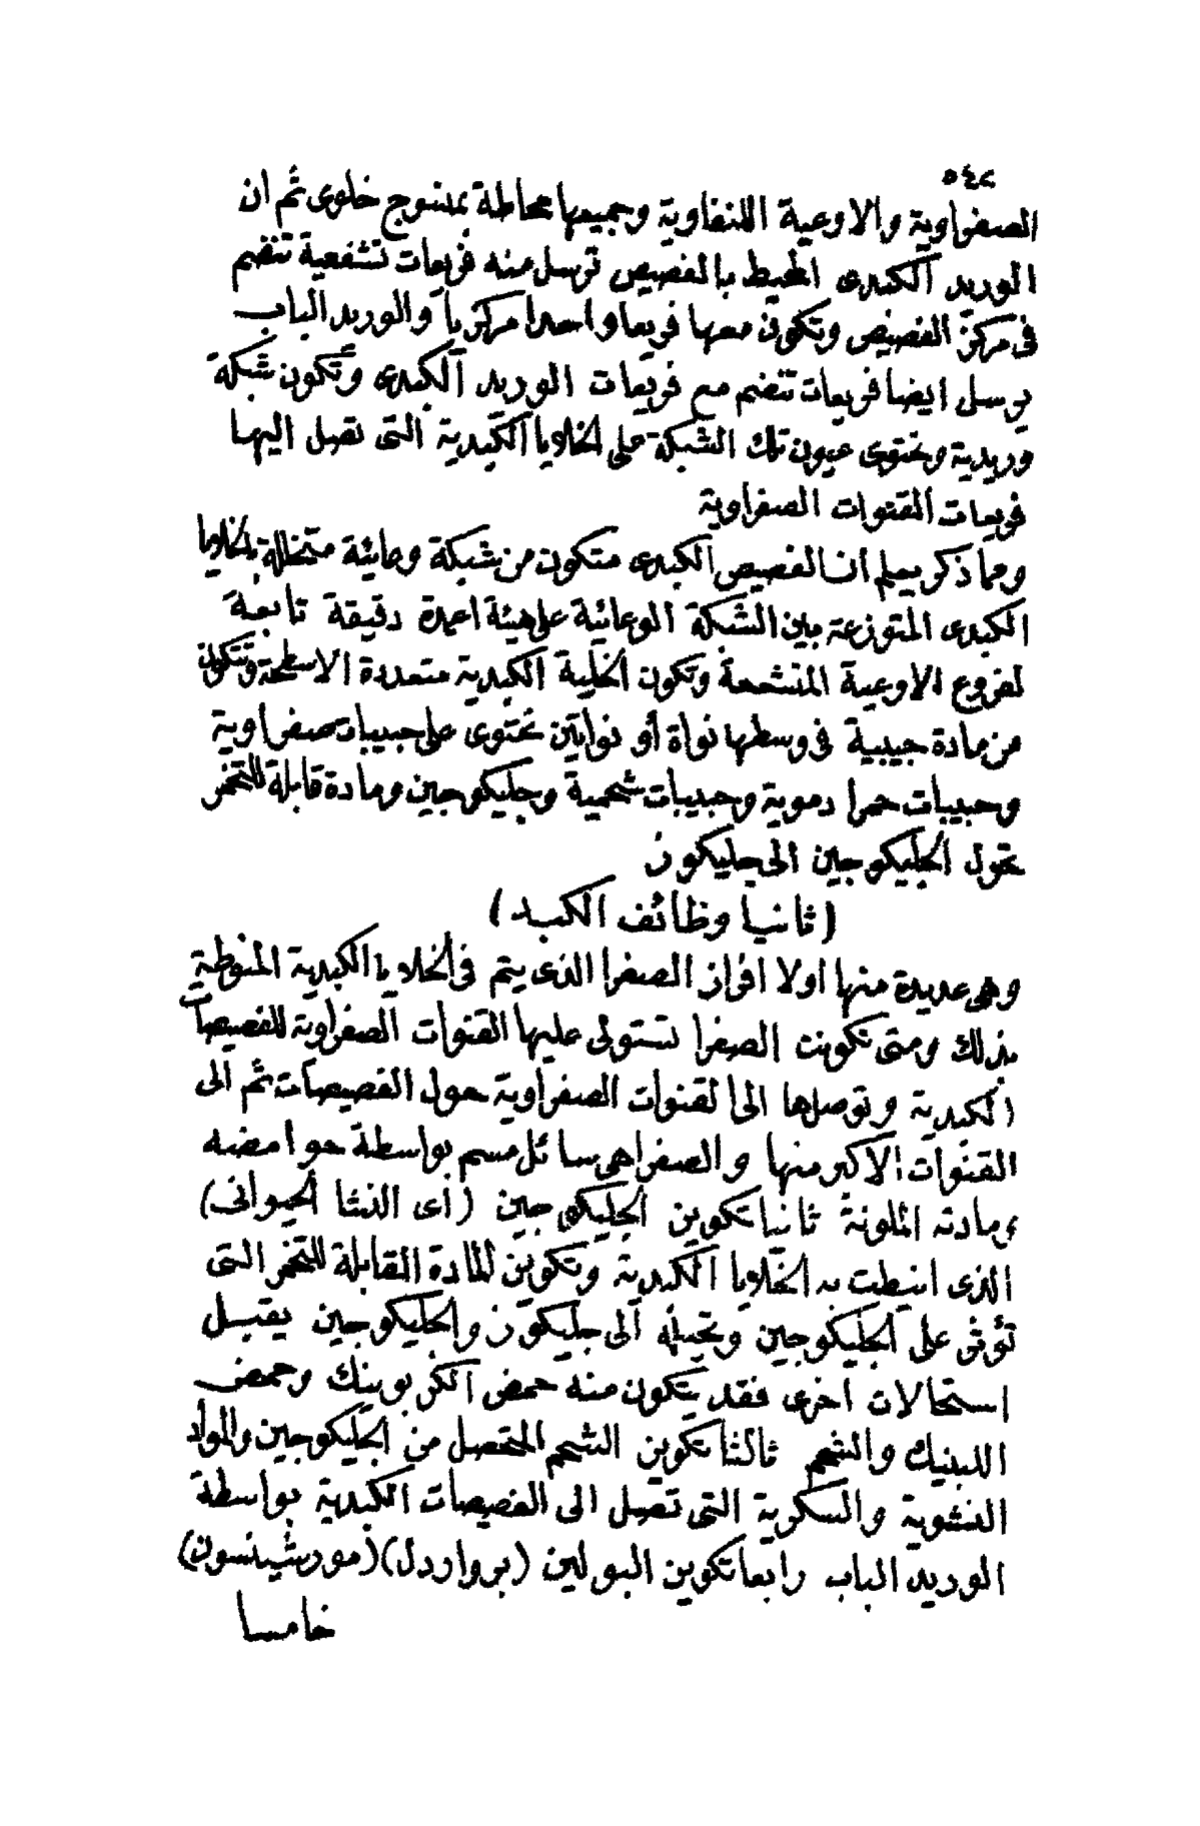 ٥٤٢
الصفراوية والاوعية اللنفاوية وجميعها محاطة بمنسوج خلوى ثم ان
الوريد الكبدى المحيط بالفصيص ترسل منه فريعات تشفعية تنضم
فى مركز الفصيص وتكون معها فريعا واحدا مركزيا والوريد الباب
يرسل ايضا فريعات تنضم مع فريعات الوريد الكبدى وتكون شبكة
وريدية وتحتوى عيون تلك الشبكة على الخلايا الكبدية التى تصل اليها
فريعات القنوات الصفراوية
ومما ذكر يعلم ان الفصيص الكبدى متكون من شبكة وعائية متخللة بالخلايا
الكبدى المتوزعة بين الشبكة الوعائية على هيئة اعمدة دقيقة تابعة
لفروع الاوعية المتشععة وتكون الخلية الكبدية متعددة الاسطحة وتتكون
من مادة حبيبية فى وسطها نواة أو نواتين تحتوى على حبيبات صفراوية
وحبيبات حمرا دموية وحبيبات شحمية وجليكوجين ومادة قابلة للتخمر
تحول الجليكوجين الى جليكوز
(ثانيا وظائف الكبد)
وهى عديدة منها اولا افراز الصفرا الذى يتم فى الخلايا الكبدية المنوطة
بذلك ومتى تكونت الصفرا تستولى عليها القنوات الصفراوية للفصيصات
الكبدية وتوصلها الى القنوات الصفراوية حول الفصيصات ثم الى
القنوات الاكبر منها والصفرا هى سائل مسم بواسطة حوامضه
ومادته الملونة ثانيا تكوين الجليكوجين (أى النشا الحيوانى)
الذى انيطت به الخلايا الكبدية وتكوين المادة القابلة للتخمر التى
تؤثر على الجليكوجين وتحيله الى جليكوز والجليكوجين يقبل
استحالات اخرى فقد يتكون منه حمض الكربونيك وحمض
اللبنيك والشحم ثالثا تكوين الشحم المتحصل من الجليكوجين والمواد
النشوية والسكرية التى تصل الى الفصيصات الكبدية بواسطة
الوريد الباب رابعا تكوين البولين (بروأردل) (مورشيسون)
خامسا